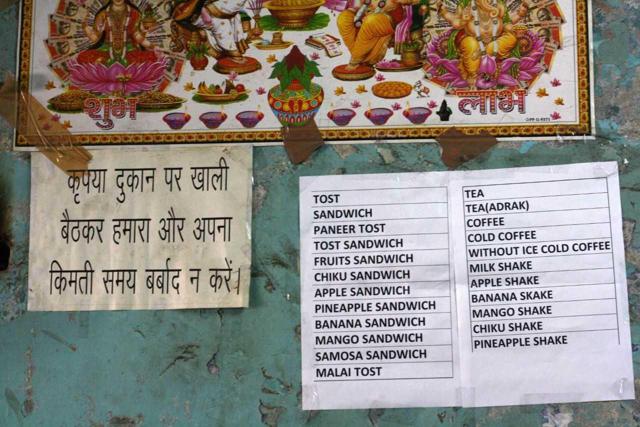 शुभ
लाभ
कृपया दुकान पर खाली
बैठकर हमारा और अपना
किमती समय बर्बाद न करें।
TOST
SANDWICH
PANEER TOST
TOST SANDWICH
FRUITS SANDWICH
CHIKU SANDWICH
APPLE SANDWICH
PINEAPPLE SANDWICH
BANANA SANDWICH
MANGO SANDWICH
SAMOSA SANDWICH
MALAI TOST
TEA
TEA(ADRAK)
COFFEE
COLD COFFEE
WITHOUT ICE COLD COFFEE
MILK SHAKE
APPLE SHAKE
BANANA SKAKE
MANGO SHAKE
CHIKU SHAKE
PINEAPPLE SHAKE